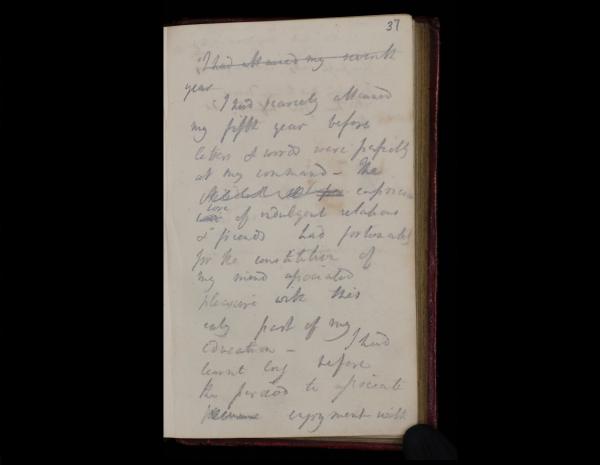 37
I had attained my seventh
year
I had scarcely attained
my fifth year before
letters & words were perfectly
at my command - The
love of indulgent relations
& friends had fortunately
for the constitution of
my mind associated
pleasure with this
early part of my
education - I had
learnt long before
this period to associate
enjoyment with